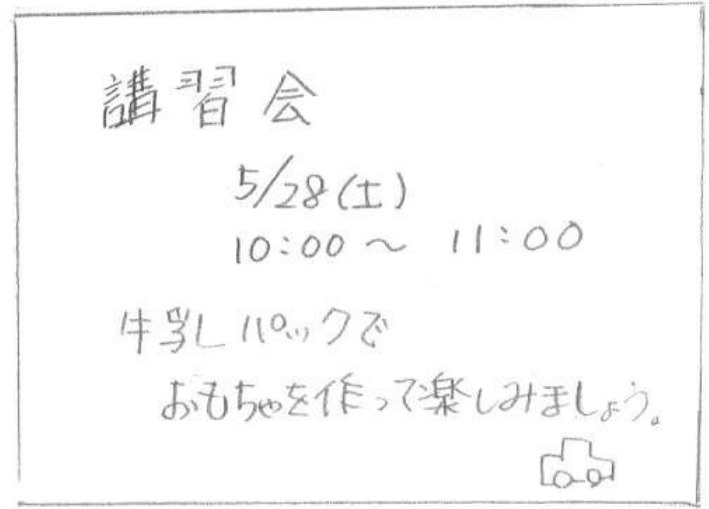 講習会
5/28(土)
10:00 ～ 11:00
牛乳パックで
おもちゃを作って楽しみましょう。